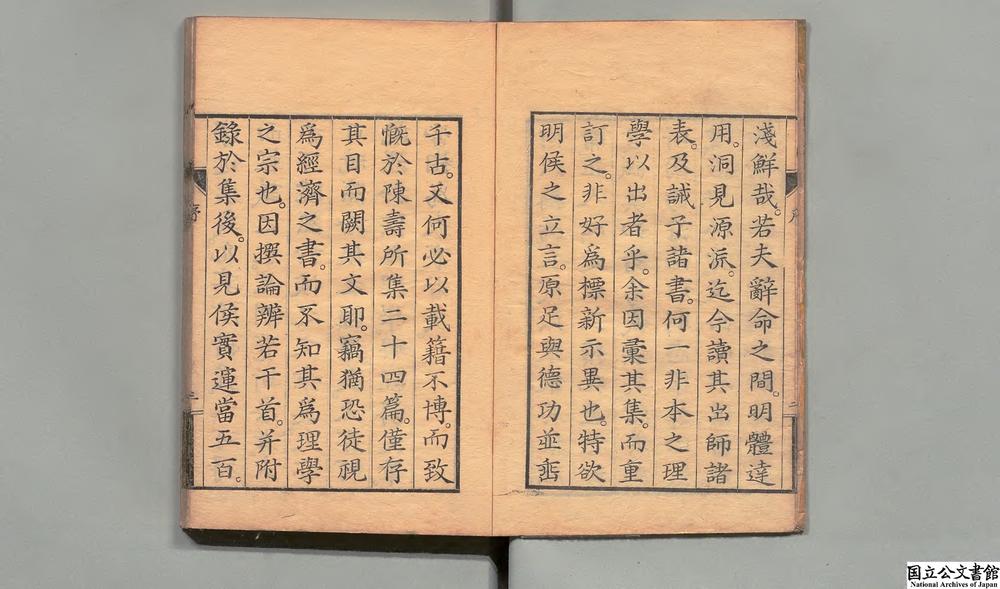 淺鮮哉。若夫辭命之間。明體達
用。洞見源派。迄今讀其出師諸
表。及誡子諸書。何一非本之理
學以出者乎。余因彙其集。而重
訂之。非好為標新示異也。特欲
明侯之立言。原足與德功並峙
千古。又何必以載籍不博。而致
慨於陳壽所集二十四篇。僅存
其目而闕其文耶。竊猶恐徒視
為經濟之書。而不知其為理學
之宗也。因撰論辨若干首。并附
錄於集後。以見侯實運當五百。
序
二
国立公文書館
National Archives of Japan